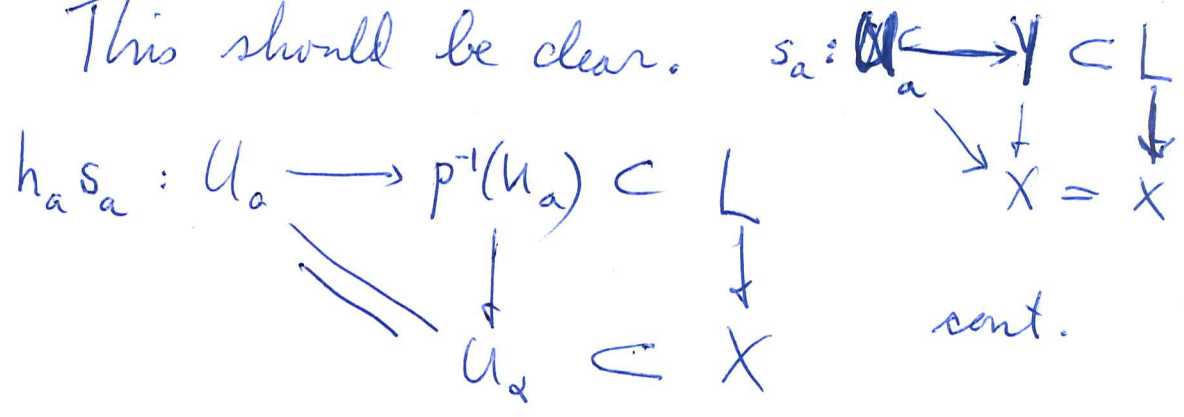 This should be clear. s_a : U_a ⟶ Y ⊂ L
↘ ↓ ↓
X = X
h_a s_a : U_a ⟶ p⁻¹(U_a) ⊂ L
↓ ↓
cont.
U_α ⊂ X